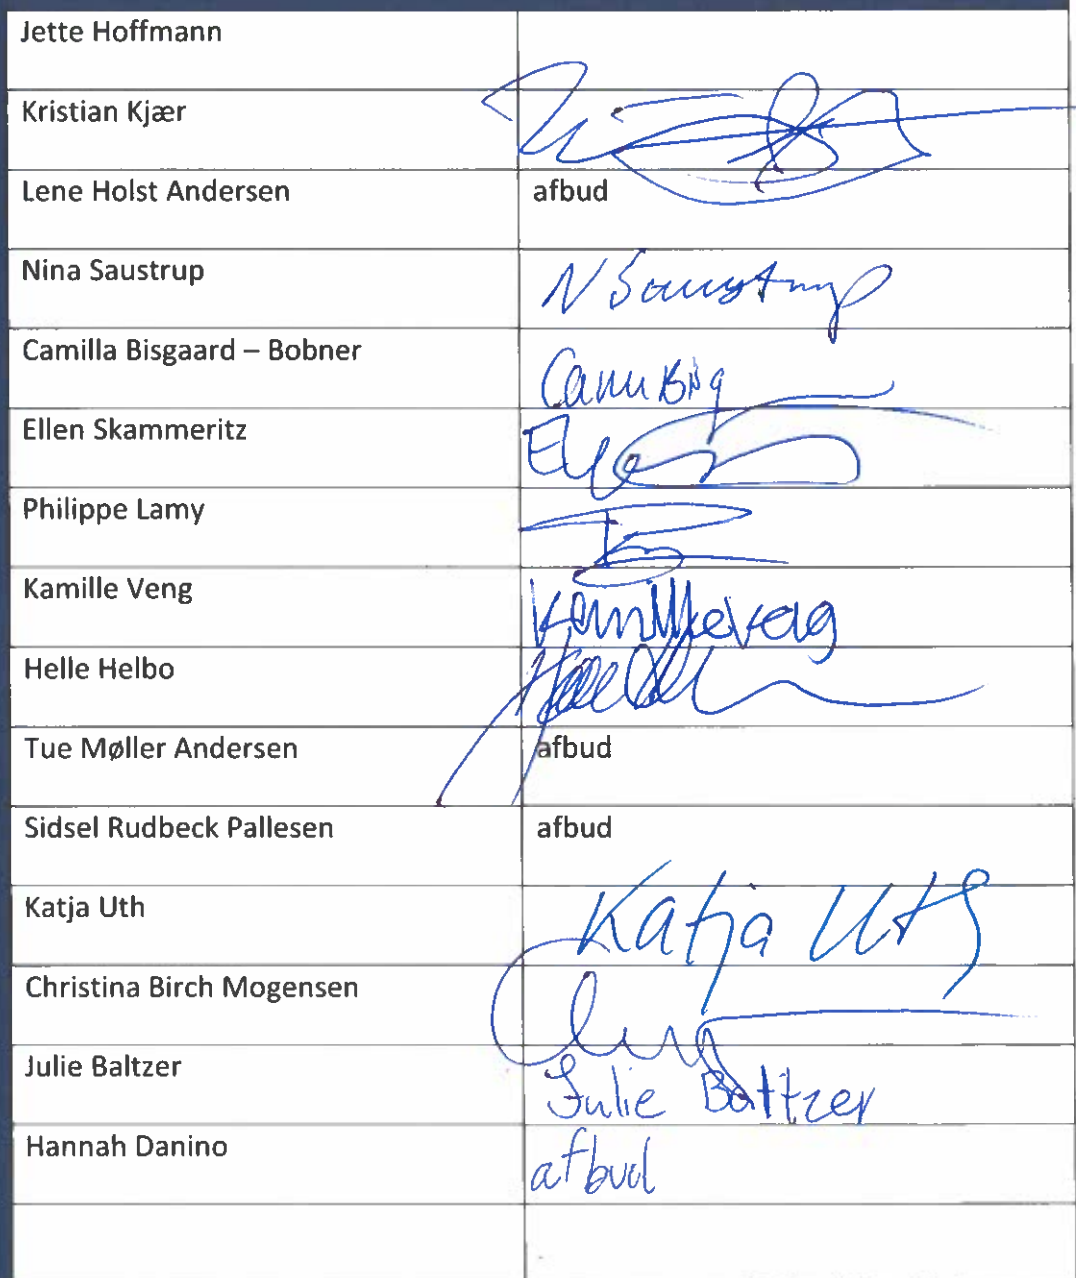 Jette Hoffmann
Kristian Kjær
Lene Holst Andersen afbud
Nina Saustrup N Saustrup
Camilla Bisgaard – Bobner
Ellen Skammeritz
Philippe Lamy
Kamille Veng Kamille Veng
Helle Helbo
Tue Møller Andersen afbud
Sidsel Rudbeck Pallesen afbud
Katja Uth Katja Uth
Christina Birch Mogensen
Julie Baltzer Julie Baltzer
Hannah Danino afbud